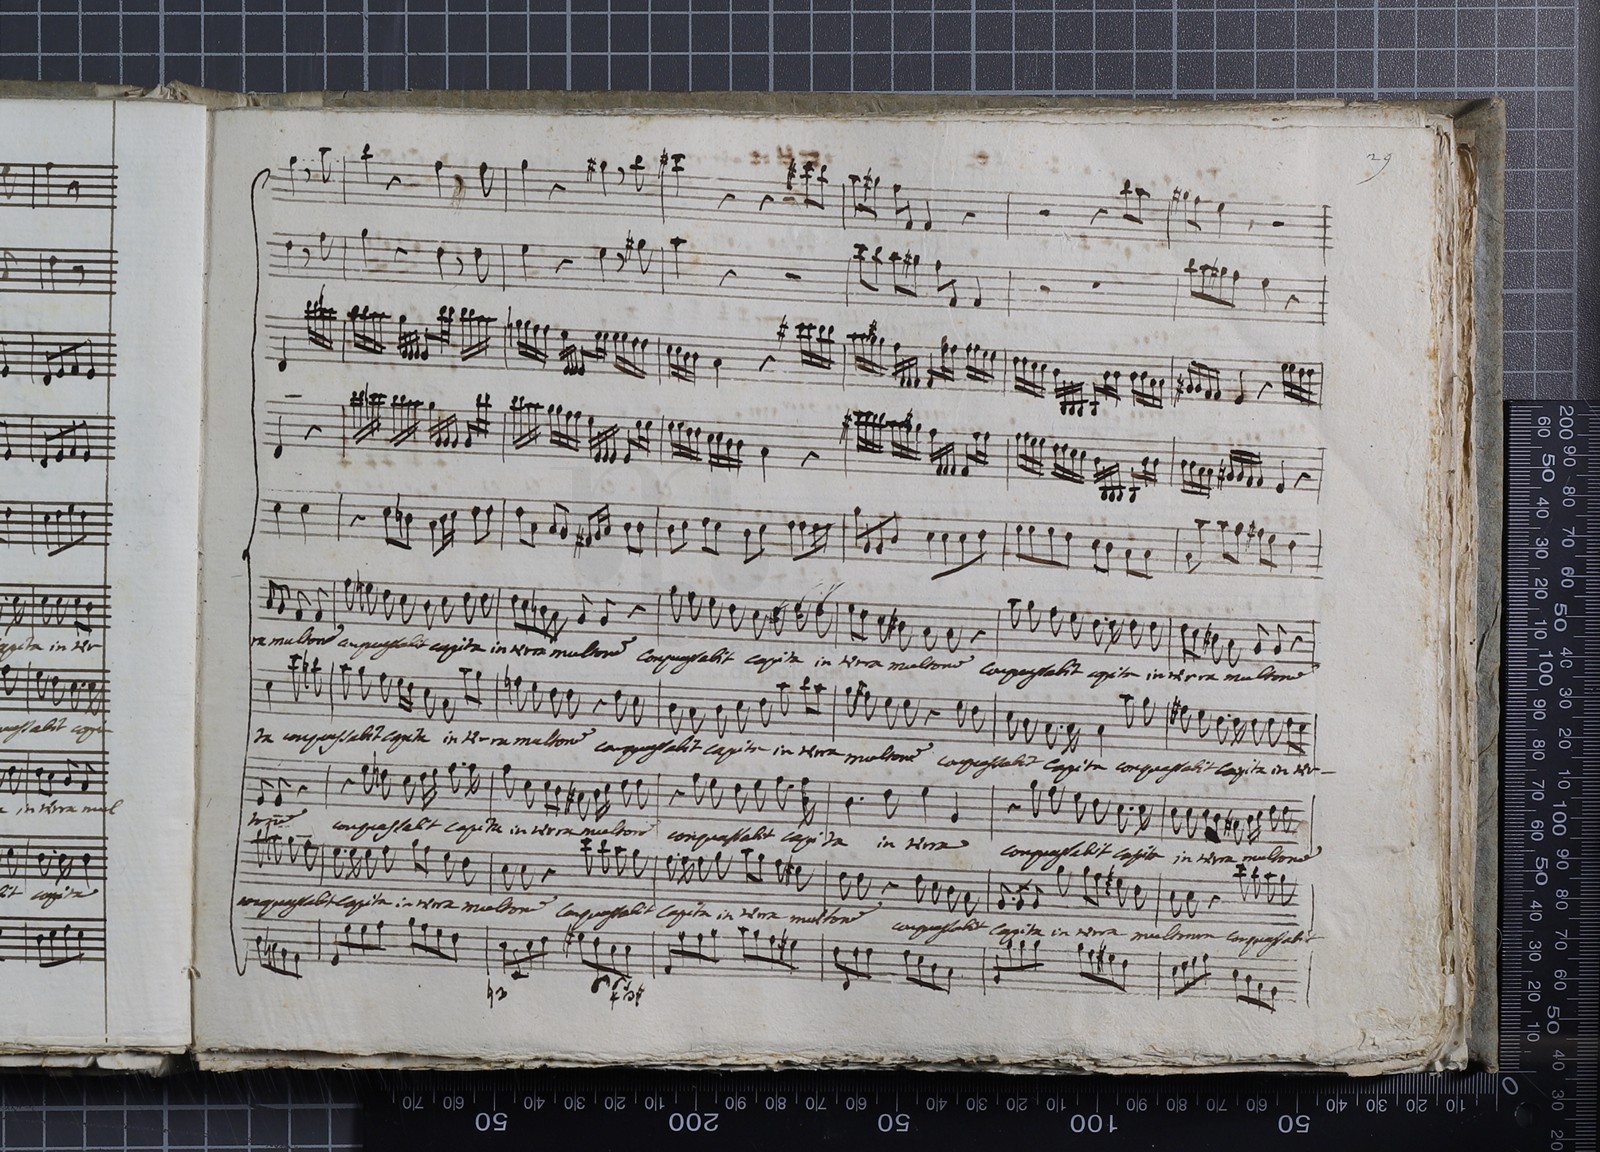 29
ra multorum conquassabit capita in terra multorum conquassabit capita in terra multorum conquassabit capita in terra multorum
capita in ter-
ta conquassabit capita in terra multorum conquassabit capita in terra multorum conquassabit capita conquassabit capita in ter-
conquassabit capita in terra multorum conquassabit capita in terra conquassabit capita in terra multorum
in terra mul
conquassabit capita in terra multorum conquassabit capita in terra multorum conquassabit capita in terra multorum conquassabit
capita
10 20 30 40 50 60 70 80 90 100 10 20 30 40 50 60 70 80 90 200
0 10 20 30 40 50 60 70 80 90 100 10 20 30 40 50 60 70 80 90 200 10 20 30 40 50 60 70